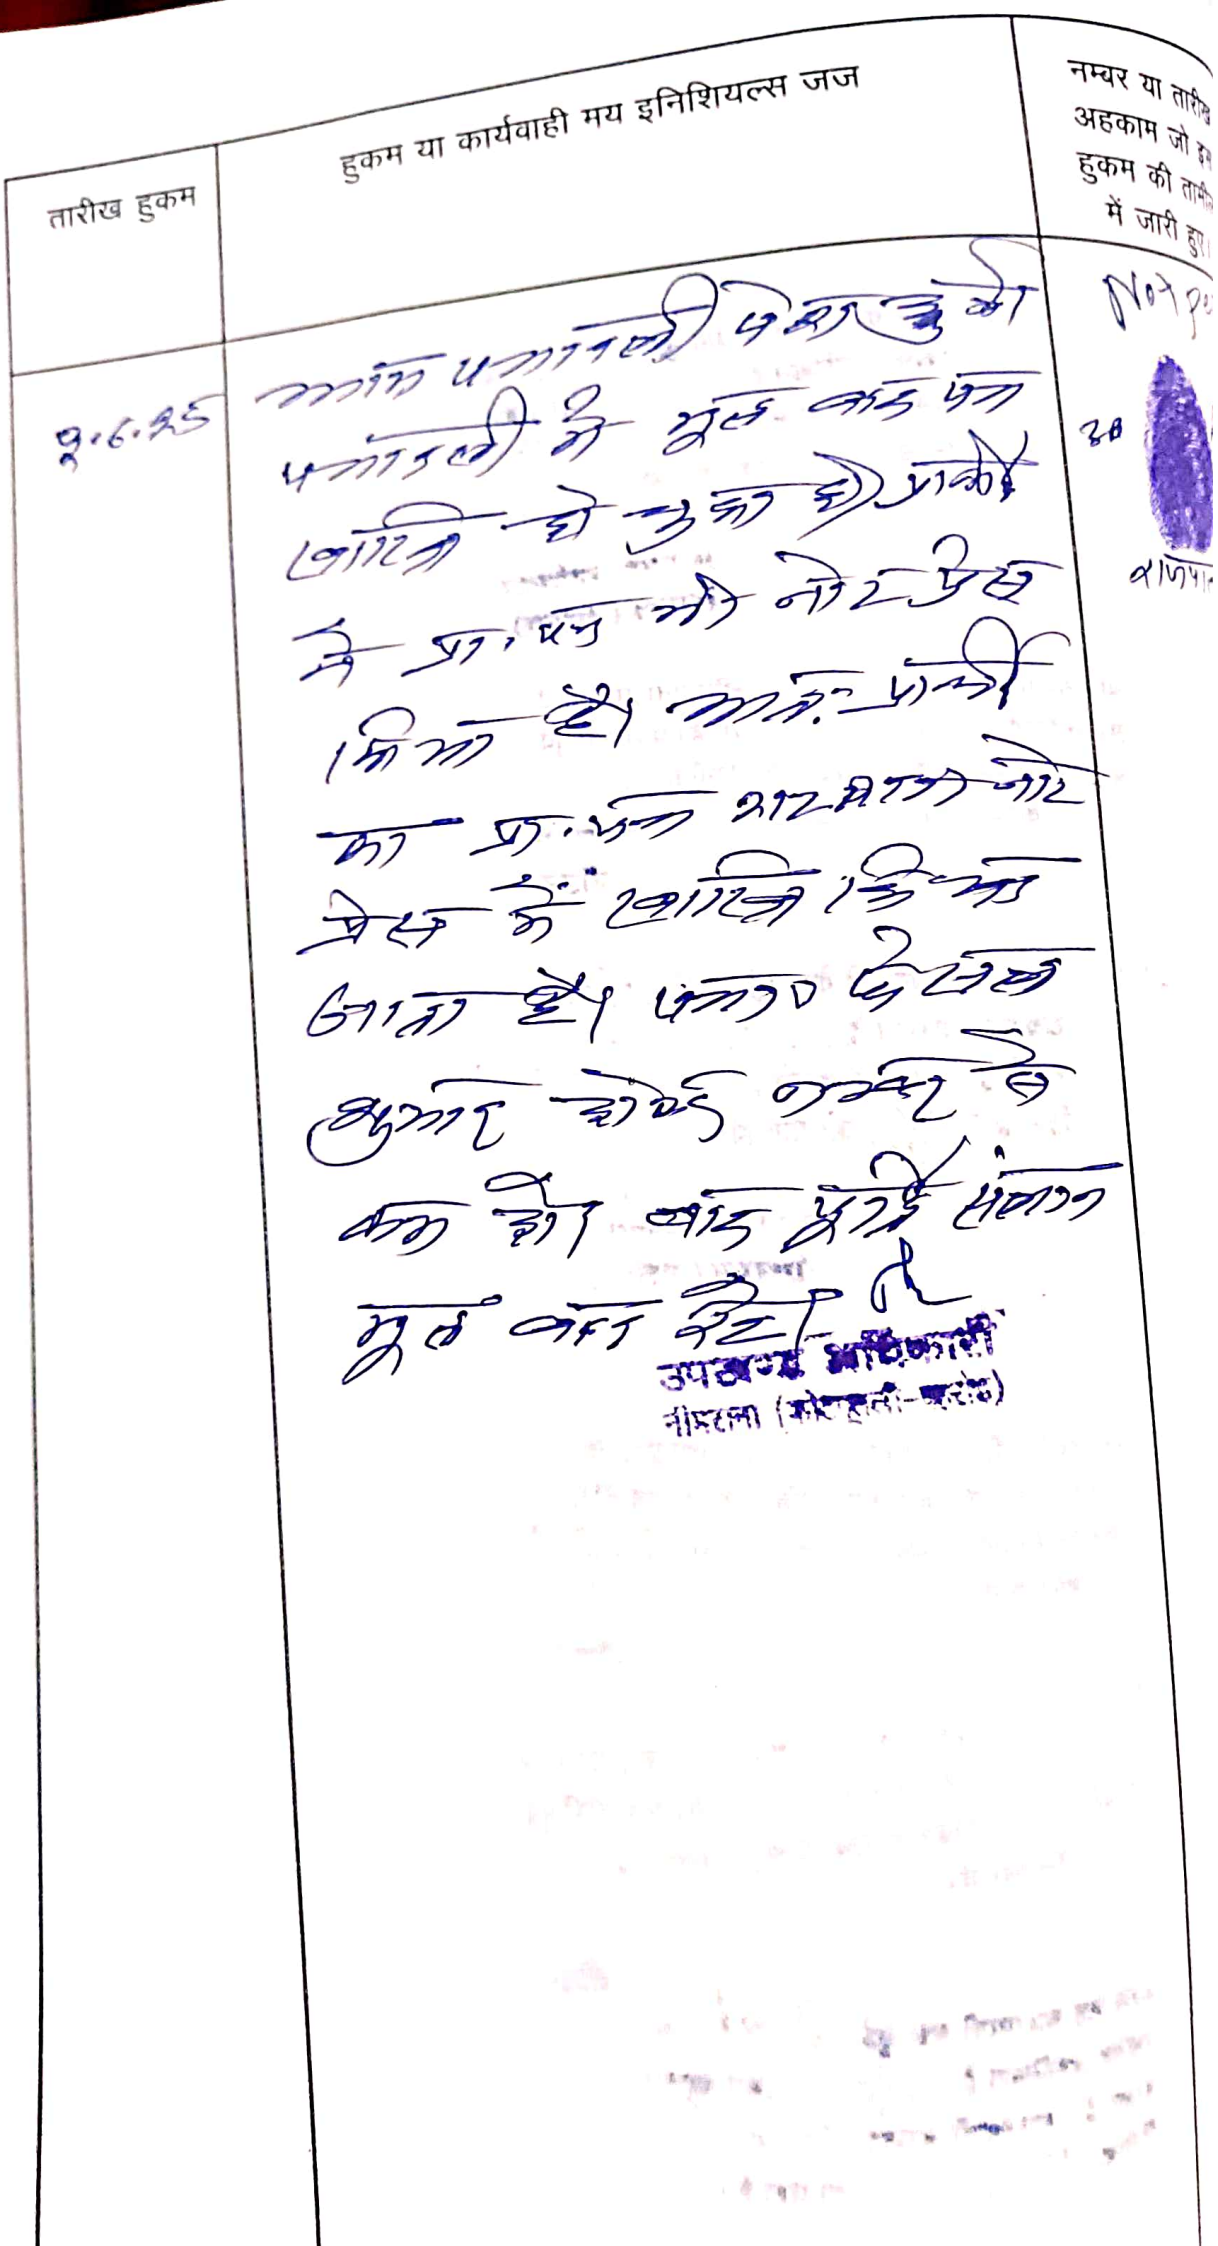 तारीख हुकम
हुकम या कार्यवाही मय इनिशियल्स जज
नम्बर या तारीख
अहकाम जो इस
हुकम की तामील
में जारी हुए।
9.6.25
पत्रावली पेश हुयी
पत्रावली में मूल वाद पत्र
खारिज हो चुका है। प्रार्थी
ने प्रा. पत्र को नोट प्रेस
किया है। अतः प्रार्थी
का प्रा. पत्र नोट
प्रेस में खारिज किया
जाता है। पत्रा० फैसल
शुमार होकर नम्बर से
कम हो। बाद पूर्ति संलग्न
मूल वाद रहे।
उपखण्ड अधिकारी
नीमराना (कोटपूतली-बहरोड)
Not